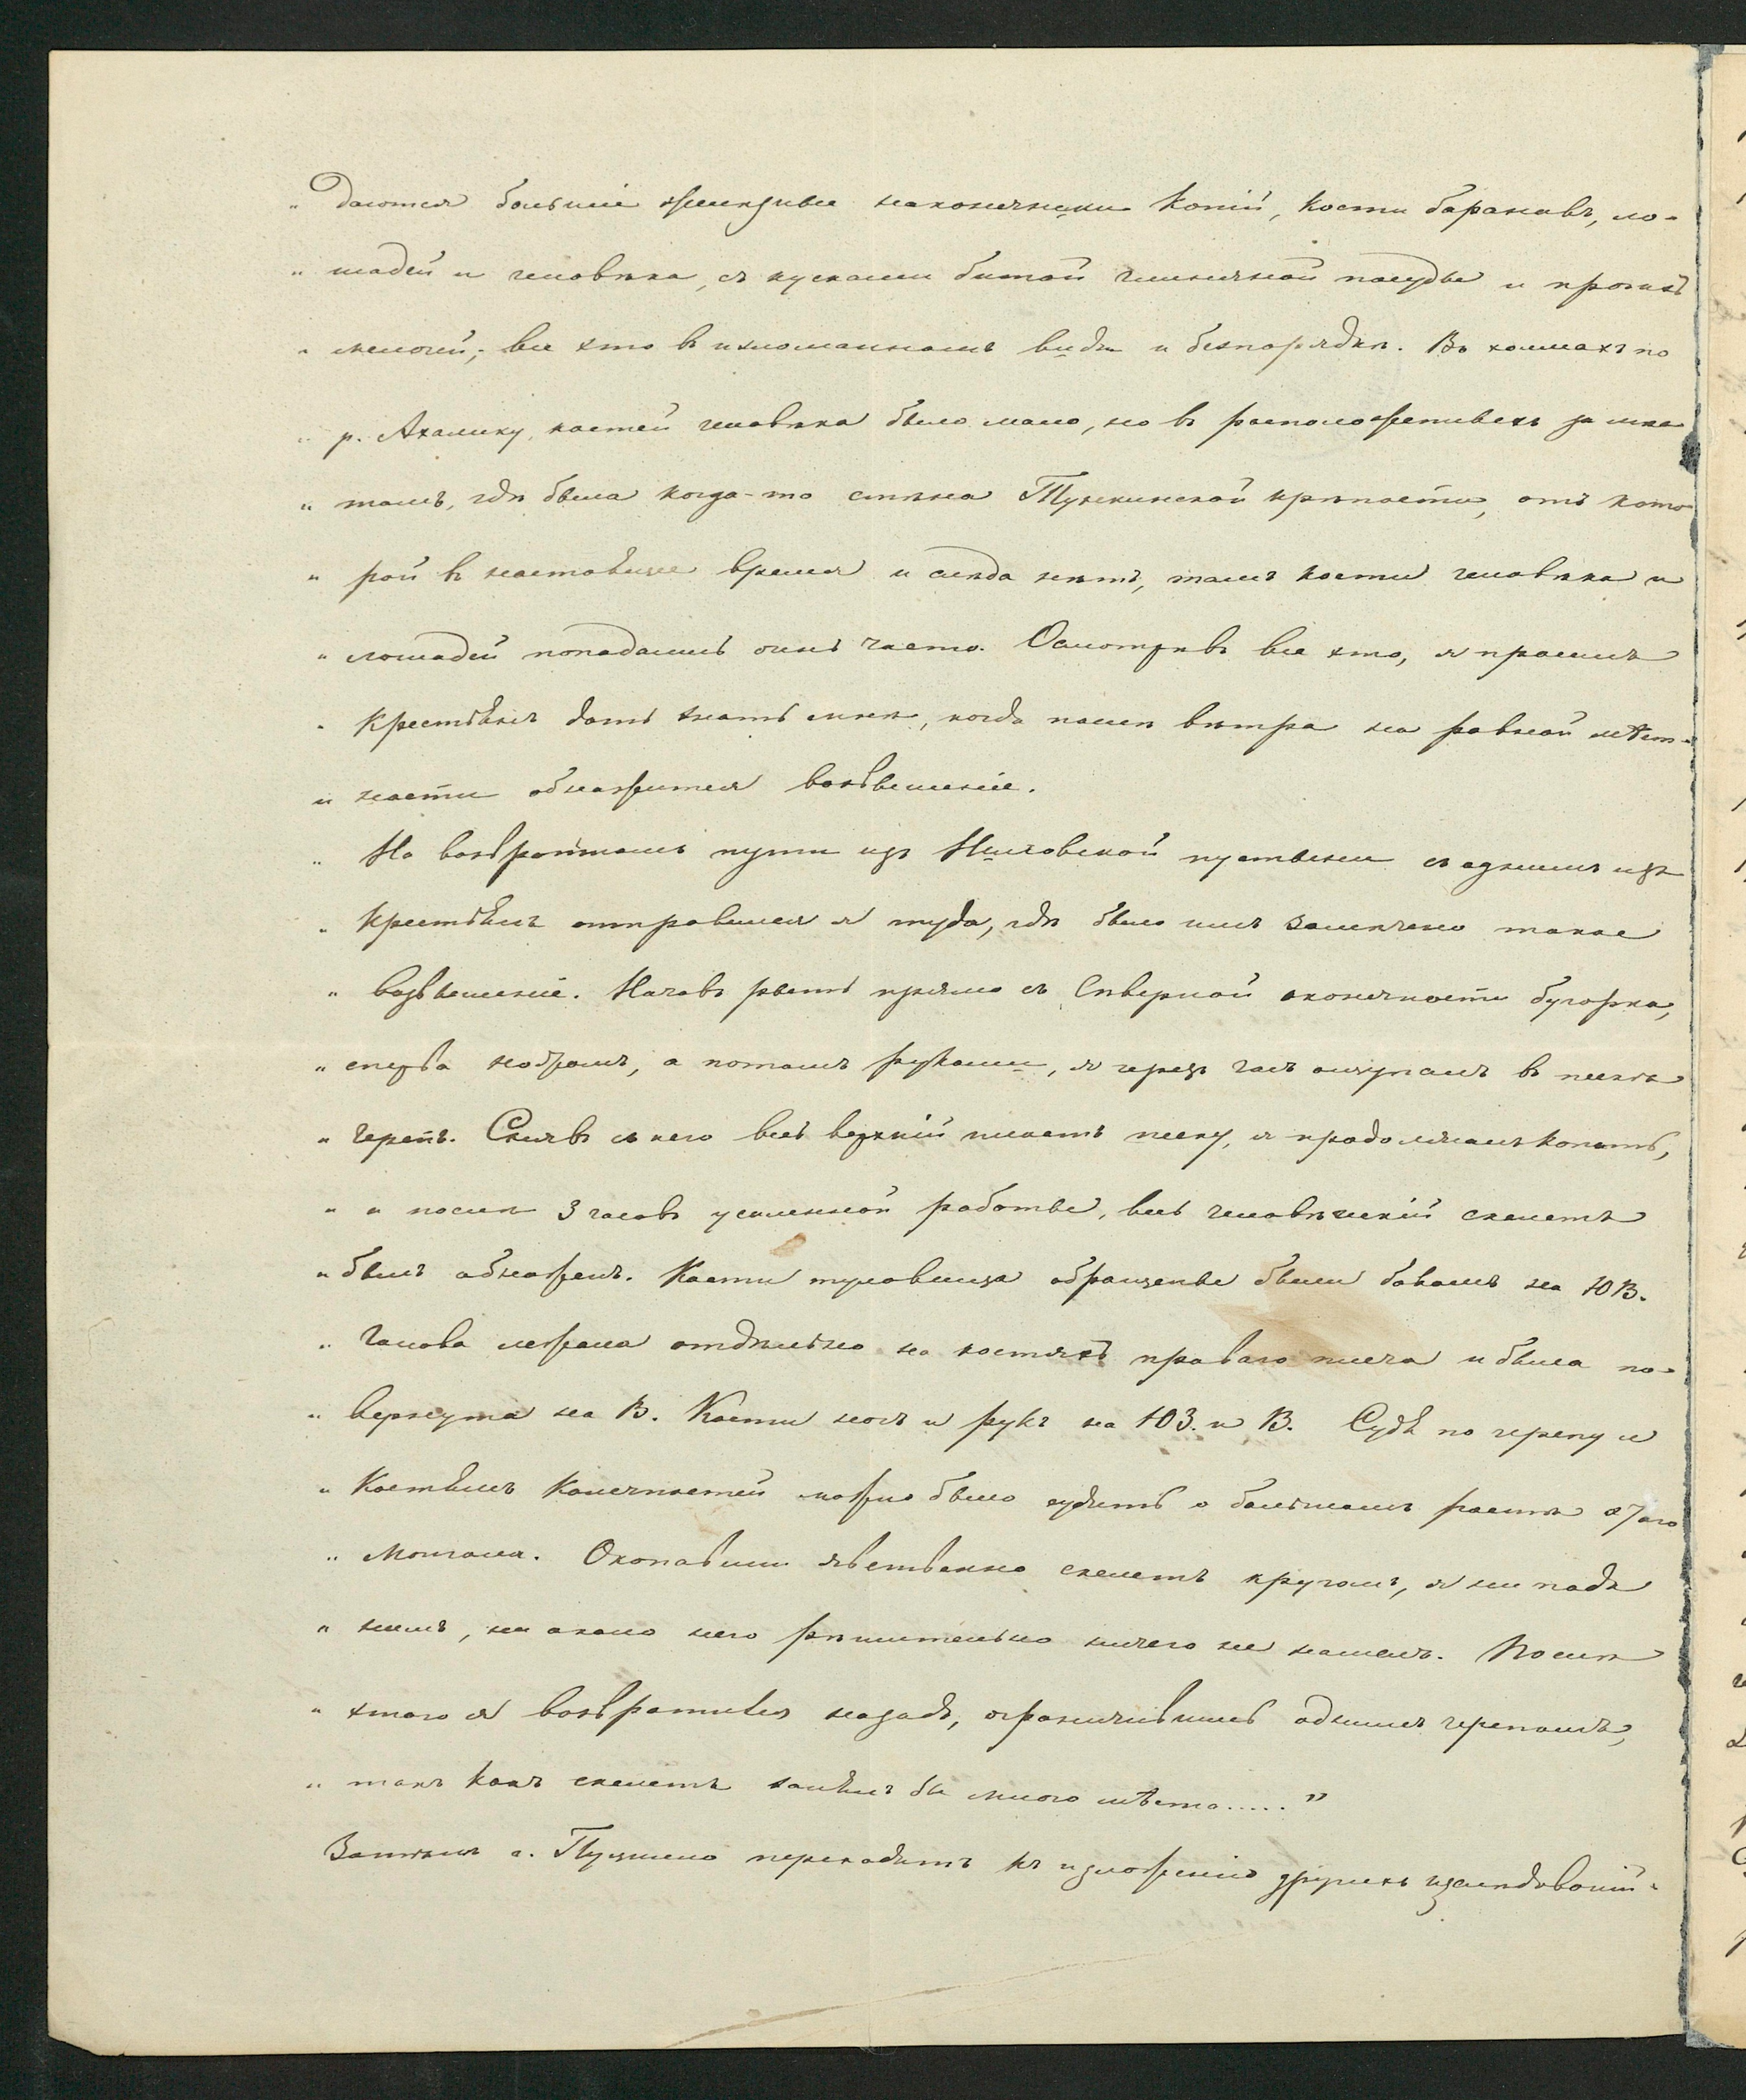 „ даются большіе желѣзные наконечники копій, кости барановъ, ло-
„ шадей и человѣка, съ кусками битой глиняной посуды и прочихъ
„ мелочей; все это въ изломанномъ видѣ и безпорядкѣ. Въ холмахъ по
„ р. Ахалику, костей человѣка было мало, но въ расположенныхъ за
„ тамъ, гдѣ была когда-то стѣна Тункинской крѣпости, отъ кото-
„ рой въ настоящее время и слѣда нѣтъ, тамъ кости человѣка и
„ лошадей попадались очень часто. Осмотрѣвъ все это, я просилъ
„ крестьянъ дать знать мнѣ, когда послѣ вѣтра на ровной мѣст-
„ ности обнажится возвышеніе.
„ На возвратномъ пути изъ Ниловской пустыни съ однимъ изъ
„ крестьянъ отправился я туда, гдѣ было имъ замечено такое
„ возвышеніе. Начавъ рыть прямо съ Сѣверной оконечности бугорка,
„ сперва ножомъ, а потомъ руками, я черезъ часъ ощупалъ въ пескѣ
„ черепъ. Снявъ съ него весь верхній пластъ песку, я продолжалъ копать,
„ и послѣ 3 часовъ усиленной работы, весь человѣческій скелетъ
„ былъ обнаженъ. Кости туловища обращены были бокомъ на ЮВ.
„ Голова лежала отдѣльно на костяхъ праваго плеча и была по-
„ вернута на В. Кости ногъ и рукъ на ЮЗ. и В. Судя по черепу и
„ костямъ конечностей можно было судить о большомъ ростѣ этаго
„ Монгола. Окопавши явственно скелетъ кругомъ, я ни подъ
„ нимъ, ни около него рѣшительно ничего не нашелъ. Послѣ
„ этого я возвратился назадъ, ограничившись однимъ черепомъ,
„ такъ какъ скелетъ занялъ бы много мѣста....."
Затѣмъ г. Пуцилло переходитъ къ изложенію другихъ изслѣдованій.